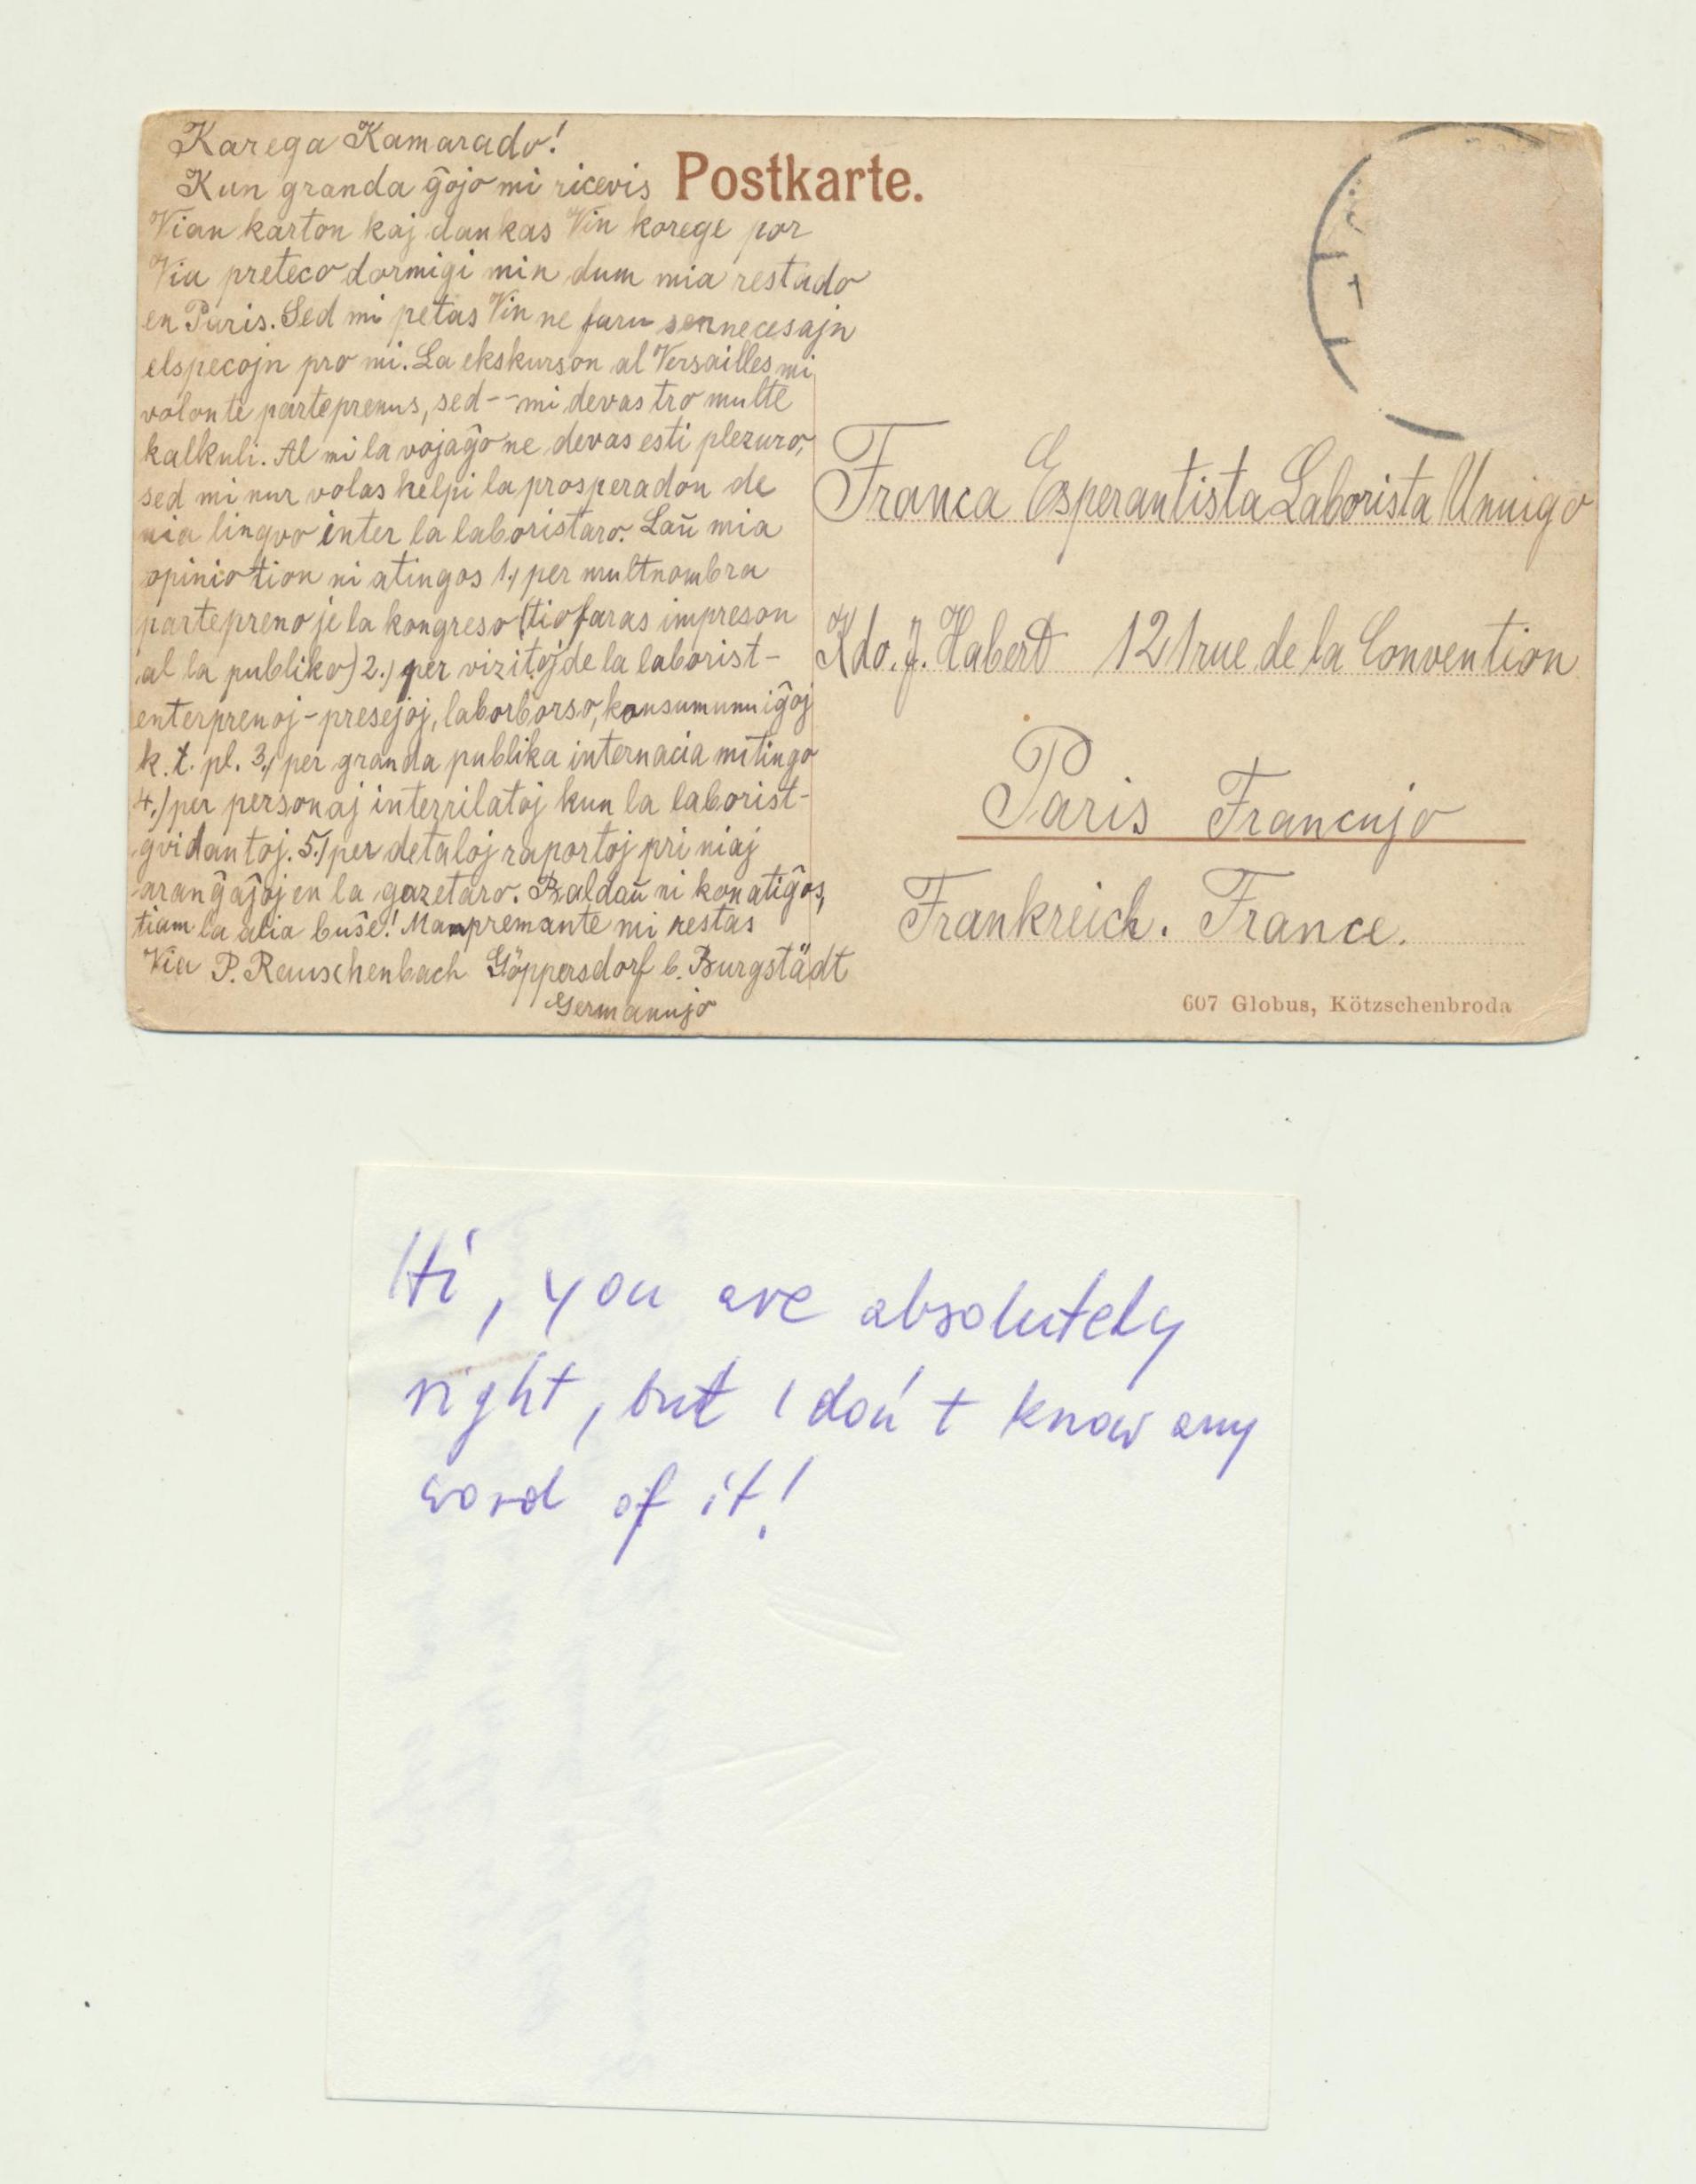 Karega Kamarado!
Kun granda ĝojo mi ricevis
Postkarte.
Vian karton kaj dankas Vin korege por
Via preteco dormigi min dum mia restado
en Paris. Sed mi petas Vin ne faru sennecesajn
elspecojn pro mi. La ekskurson al Versailles mi
volonte partoprenus, sed -- mi devas tro multe
kalkuli. Al mi la vojaĝo ne devas esti plezuro,
sed mi nur volas helpi la prosperadon de
nia lingvo inter la laboristaro. Laŭ mia
opinio tion ni atingos 1.) per multnombra
partepreno je la kongreso (tio faras impreson
al la publiko) 2.) per vizitoj de la laborist-
enterprenoj - presejoj, laborborso, konsumunuiĝoj
k. t. pl. 3.) per granda publika internacia mitingo
4.) per personaj interrilatoj kun la laborist-
gvidantoj. 5.) per detaloj raportoj pri niaj
aranĝaĵoj en la gazetaro. Baldaŭ ni konatiĝos,
tiam la alia buŝe! Manpremante mi restas
Via P. Rauschenbach Göppersdorf b. Burgstädt
Germanujo
Franca Esperantista Laborista Unuigo
Kdo. J. Habert 121 rue de la Convention
Paris Francujo
Frankreich. France.
607 Globus, Kötzschenbroda
Hi, you are absolutely
right, but I don't know any
word of it!